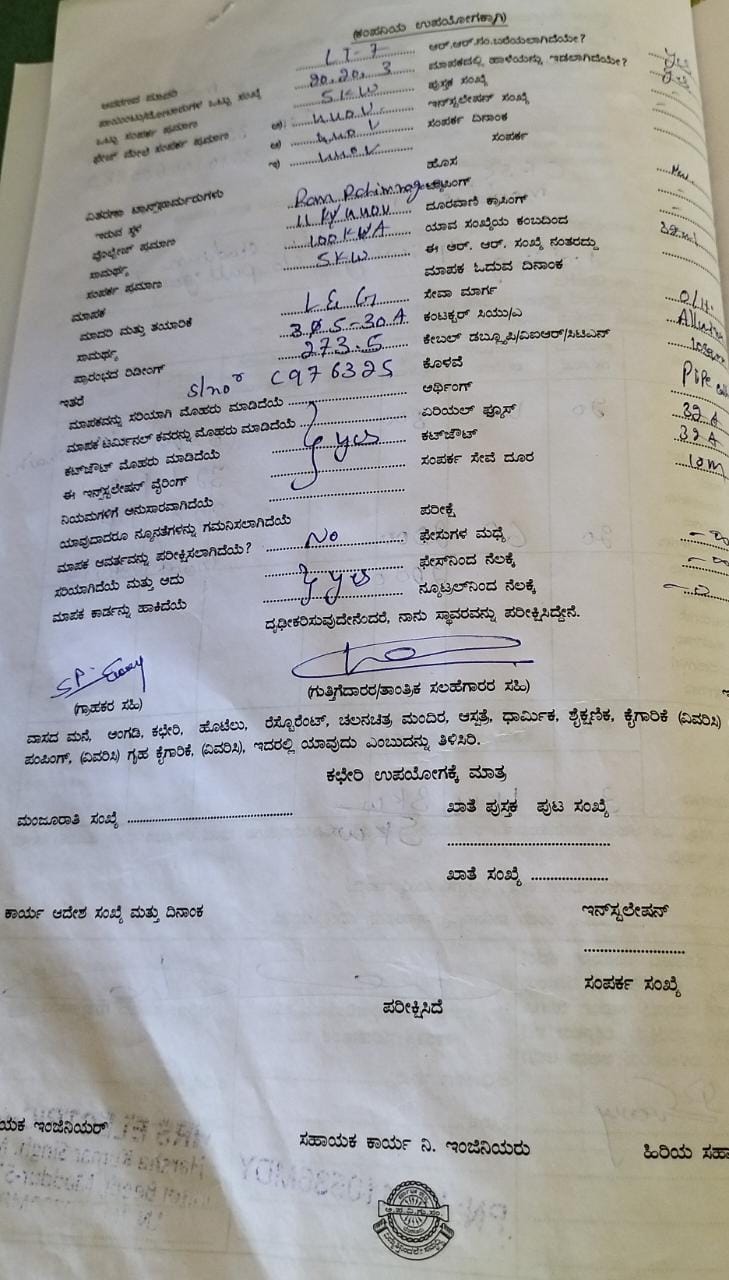 (ಕಂಪನಿಯ ಉಪಯೋಗಕ್ಕಾಗಿ)
LT-7 ಆರ್.ಆರ್.ಸಂ.ಬರೆಯಲಾಗಿದೆಯೇ? yes
ಪಾಯಿಂಟು/ಮೋಟಾರುಗಳ ಒಟ್ಟು ಸಂಖ್ಯೆ 20.20.3 ಮಾಪಕದಲ್ಲಿ ಹಾಳೆಯನ್ನು ಇಡಲಾಗಿದೆಯೇ? yes
ಒಟ್ಟು ಸಂಪರ್ಕ ಪ್ರಮಾಣ 5KW ಪುಸ್ತಕ ಸಂಖ್ಯೆ
ಫೇಜ್ ಮೇಲೆ ಸಂಪರ್ಕ ಪ್ರಮಾಣ 440V ಇನ್‌ಸ್ಟಲೇಷನ್ ಸಂಖ್ಯೆ
440V ಸಂಪರ್ಕ ದಿನಾಂಕ
440V ಸಂಪರ್ಕ
ವಿತರಣಾ ಟ್ರಾನ್ಸ್‌ಫಾರ್ಮರುಗಳು ಹೊಸ
ಇರುವ ಸ್ಥಳ
ವೋಲ್ಟೇಜ್ ಪ್ರಮಾಣ 11KV 440V ದೂರವಾಣಿ ಕ್ರಾಸಿಂಗ್
ಸಾಮರ್ಥ್ಯ 100KWA ಯಾವ ಸಂಖ್ಯೆಯ ಕಂಬದಿಂದ
ಸಂಪರ್ಕ ಪ್ರಮಾಣ 5KW ಈ ಆರ್. ಆರ್. ಸಂಖ್ಯೆ ನಂತರದ್ದು
ಮಾಪಕ ಓದುವ ದಿನಾಂಕ
ಮಾಪಕ
ಮಾದರಿ ಮತ್ತು ತಯಾರಿಕೆ L&G ಸೇವಾ ಮಾರ್ಗ O/H
ಸಾಮರ್ಥ್ಯ 3Ø5-30A ಕಂಟಕ್ಟರ್ ಸಿಯು/ಎ
ಪ್ರಾರಂಭದ ರಿಡಿಂಗ್ 273.5 ಕೇಬಲ್ ಡಬ್ಲ್ಯೂಪಿ/ವಿಐಆರ್/ಸಿಟಿಎನ್
ಇತರೆ s/no C976325 ಕೊಳವೆ Pipe
ಮಾಪಕವನ್ನು ಸರಿಯಾಗಿ ಮೊಹರು ಮಾಡಿದೆಯೆ ಆರ್ಥಿಂಗ್
ಮಾಪಕ ಟರ್ಮಿನಲ್ ಕವರನ್ನು ಮೊಹರು ಮಾಡಿದೆಯೆ ಏರಿಯಲ್ ಫ್ಯೂಸ್ 32A
ಕಟ್‌ಔಟ್ ಮೊಹರು ಮಾಡಿದೆಯೆ yes ಕಟ್‌ಔಟ್ 32A
ಈ ಇನ್‌ಸ್ಟಲೇಷನ್ ವೈರಿಂಗ್ ಸಂಪರ್ಕ ಸೇವೆ ದೂರ 10m
ನಿಯಮಗಳಿಗೆ ಅನುಸಾರವಾಗಿದೆಯೆ
ಯಾವುದಾದರೂ ನ್ಯೂನತೆಗಳನ್ನು ಗಮನಿಸಲಾಗಿದೆಯೆ ಪರೀಕ್ಷೆ
ಮಾಪಕ ಆವರ್ತವನ್ನು ಪರೀಕ್ಷಿಸಲಾಗಿದೆಯೆ? No ಫೇಸುಗಳ ಮಧ್ಯೆ
ಸರಿಯಾಗಿದೆಯೆ ಮತ್ತು ಅದು ಫೇಸ್‌ನಿಂದ ನೆಲಕ್ಕೆ
ಮಾಪಕ ಕಾರ್ಡನ್ನು ಹಾಕಿದೆಯೆ yes ನ್ಯೂಟ್ರಲ್‌ನಿಂದ ನೆಲಕ್ಕೆ
ದೃಢೀಕರಿಸುವುದೇನೆಂದರೆ, ನಾನು ಸ್ಥಾವರವನ್ನು ಪರೀಕ್ಷಿಸಿದ್ದೇನೆ.
(ಗ್ರಾಹಕರ ಸಹಿ) (ಗುತ್ತಿಗೆದಾರರ/ತಾಂತ್ರಿಕ ಸಲಹೆಗಾರರ ಸಹಿ)
ವಾಸದ ಮನೆ, ಅಂಗಡಿ, ಕಛೇರಿ, ಹೊಟೆಲು, ರೆಸ್ಟೊರೆಂಟ್, ಚಲನಚಿತ್ರ ಮಂದಿರ, ಆಸ್ಪತ್ರೆ, ಧಾರ್ಮಿಕ, ಶೈಕ್ಷಣಿಕ, ಕೈಗಾರಿಕೆ (ವಿವರಿಸಿ)
ಪಂಪಿಂಗ್, (ವಿವರಿಸಿ) ಗೃಹ ಕೈಗಾರಿಕೆ, (ವಿವರಿಸಿ), ಇದರಲ್ಲಿ ಯಾವುದು ಎಂಬುದನ್ನು ತಿಳಿಸಿರಿ.
ಕಛೇರಿ ಉಪಯೋಗಕ್ಕೆ ಮಾತ್ರ
ಮಂಜೂರಾತಿ ಸಂಖ್ಯೆ ಖಾತೆ ಪುಸ್ತಕ ಪುಟ ಸಂಖ್ಯೆ
ಖಾತೆ ಸಂಖ್ಯೆ
ಕಾರ್ಯ ಆದೇಶ ಸಂಖ್ಯೆ ಮತ್ತು ದಿನಾಂಕ ಇನ್‌ಸ್ಟಲೇಷನ್
ಸಂಪರ್ಕ ಸಂಖ್ಯೆ
ಪರೀಕ್ಷಿಸಿದೆ
ಯಕ ಇಂಜಿನಿಯರ್ ಸಹಾಯಕ ಕಾರ್ಯ ನಿ. ಇಂಜಿನಿಯರು ಹಿರಿಯ ಸಹಾ